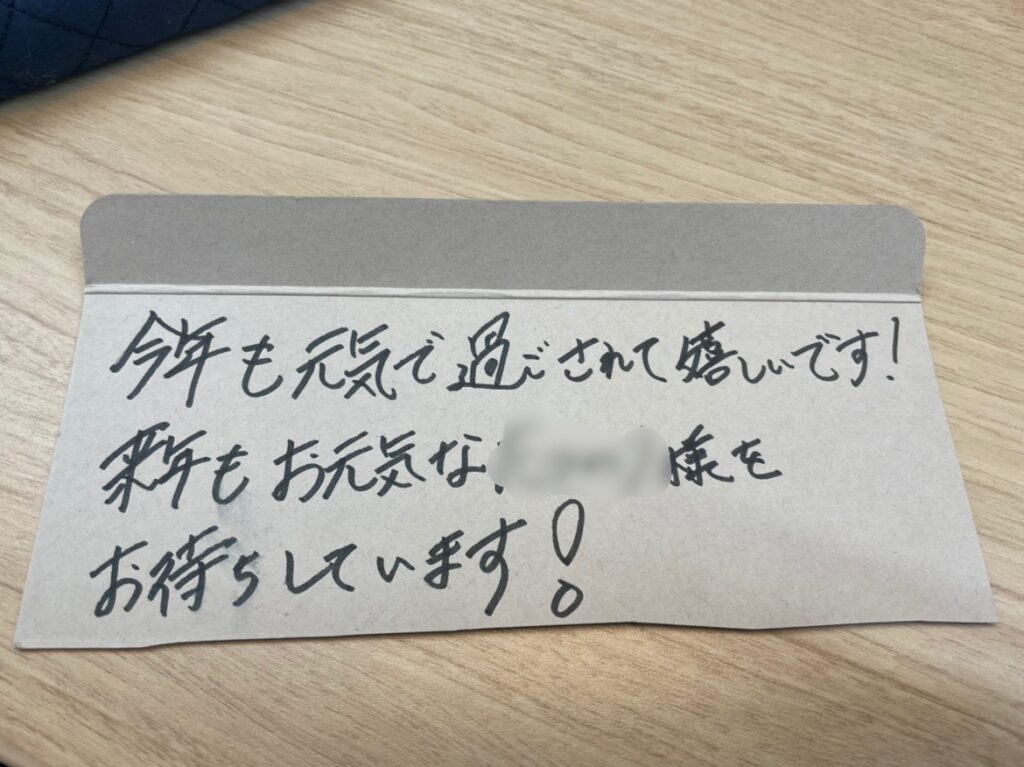 今年も元気で過ごされて嬉しいです!
来年もお元気な様を
お待ちしています!